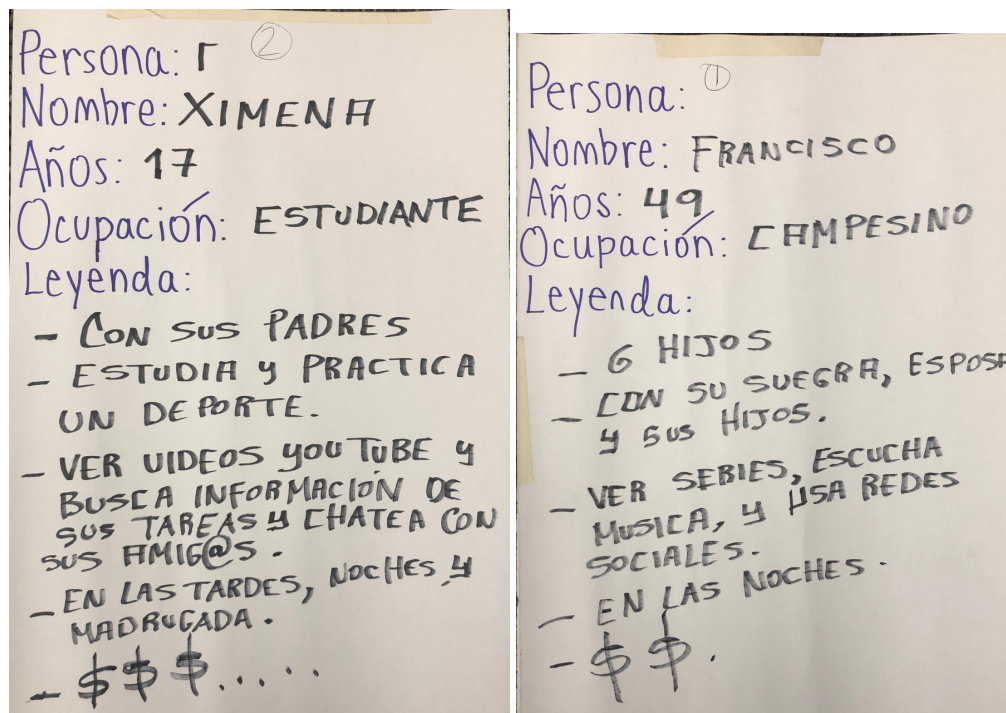 Persona: r ②
Nombre: XIMENA
Años: 17
Ocupación: ESTUDIANTE
Leyenda:
- CON SUS PADRES
- ESTUDIA y PRACTICA
UN DEPORTE.
- VER VIDEOS YOUTUBE y
BUSCA INFORMACIÓN DE
SUS TAREAS Y CHATEA CON
SUS AMIG@S.
- EN LAS TARDES, NOCHES Y
MADRUGADA.
- $ $ $ . . . . .
Persona: ①
Nombre: FRANCISCO
Años: 49
Ocupación: CAMPESINO
Leyenda:
- 6 HIJOS
- CON SU SUEGRA, ESPOSA
Y SUS HIJOS.
- VER SERIES, ESCUCHA
MUSICA, Y USA REDES
SOCIALES.
- EN LAS NOCHES.
- $ $ .